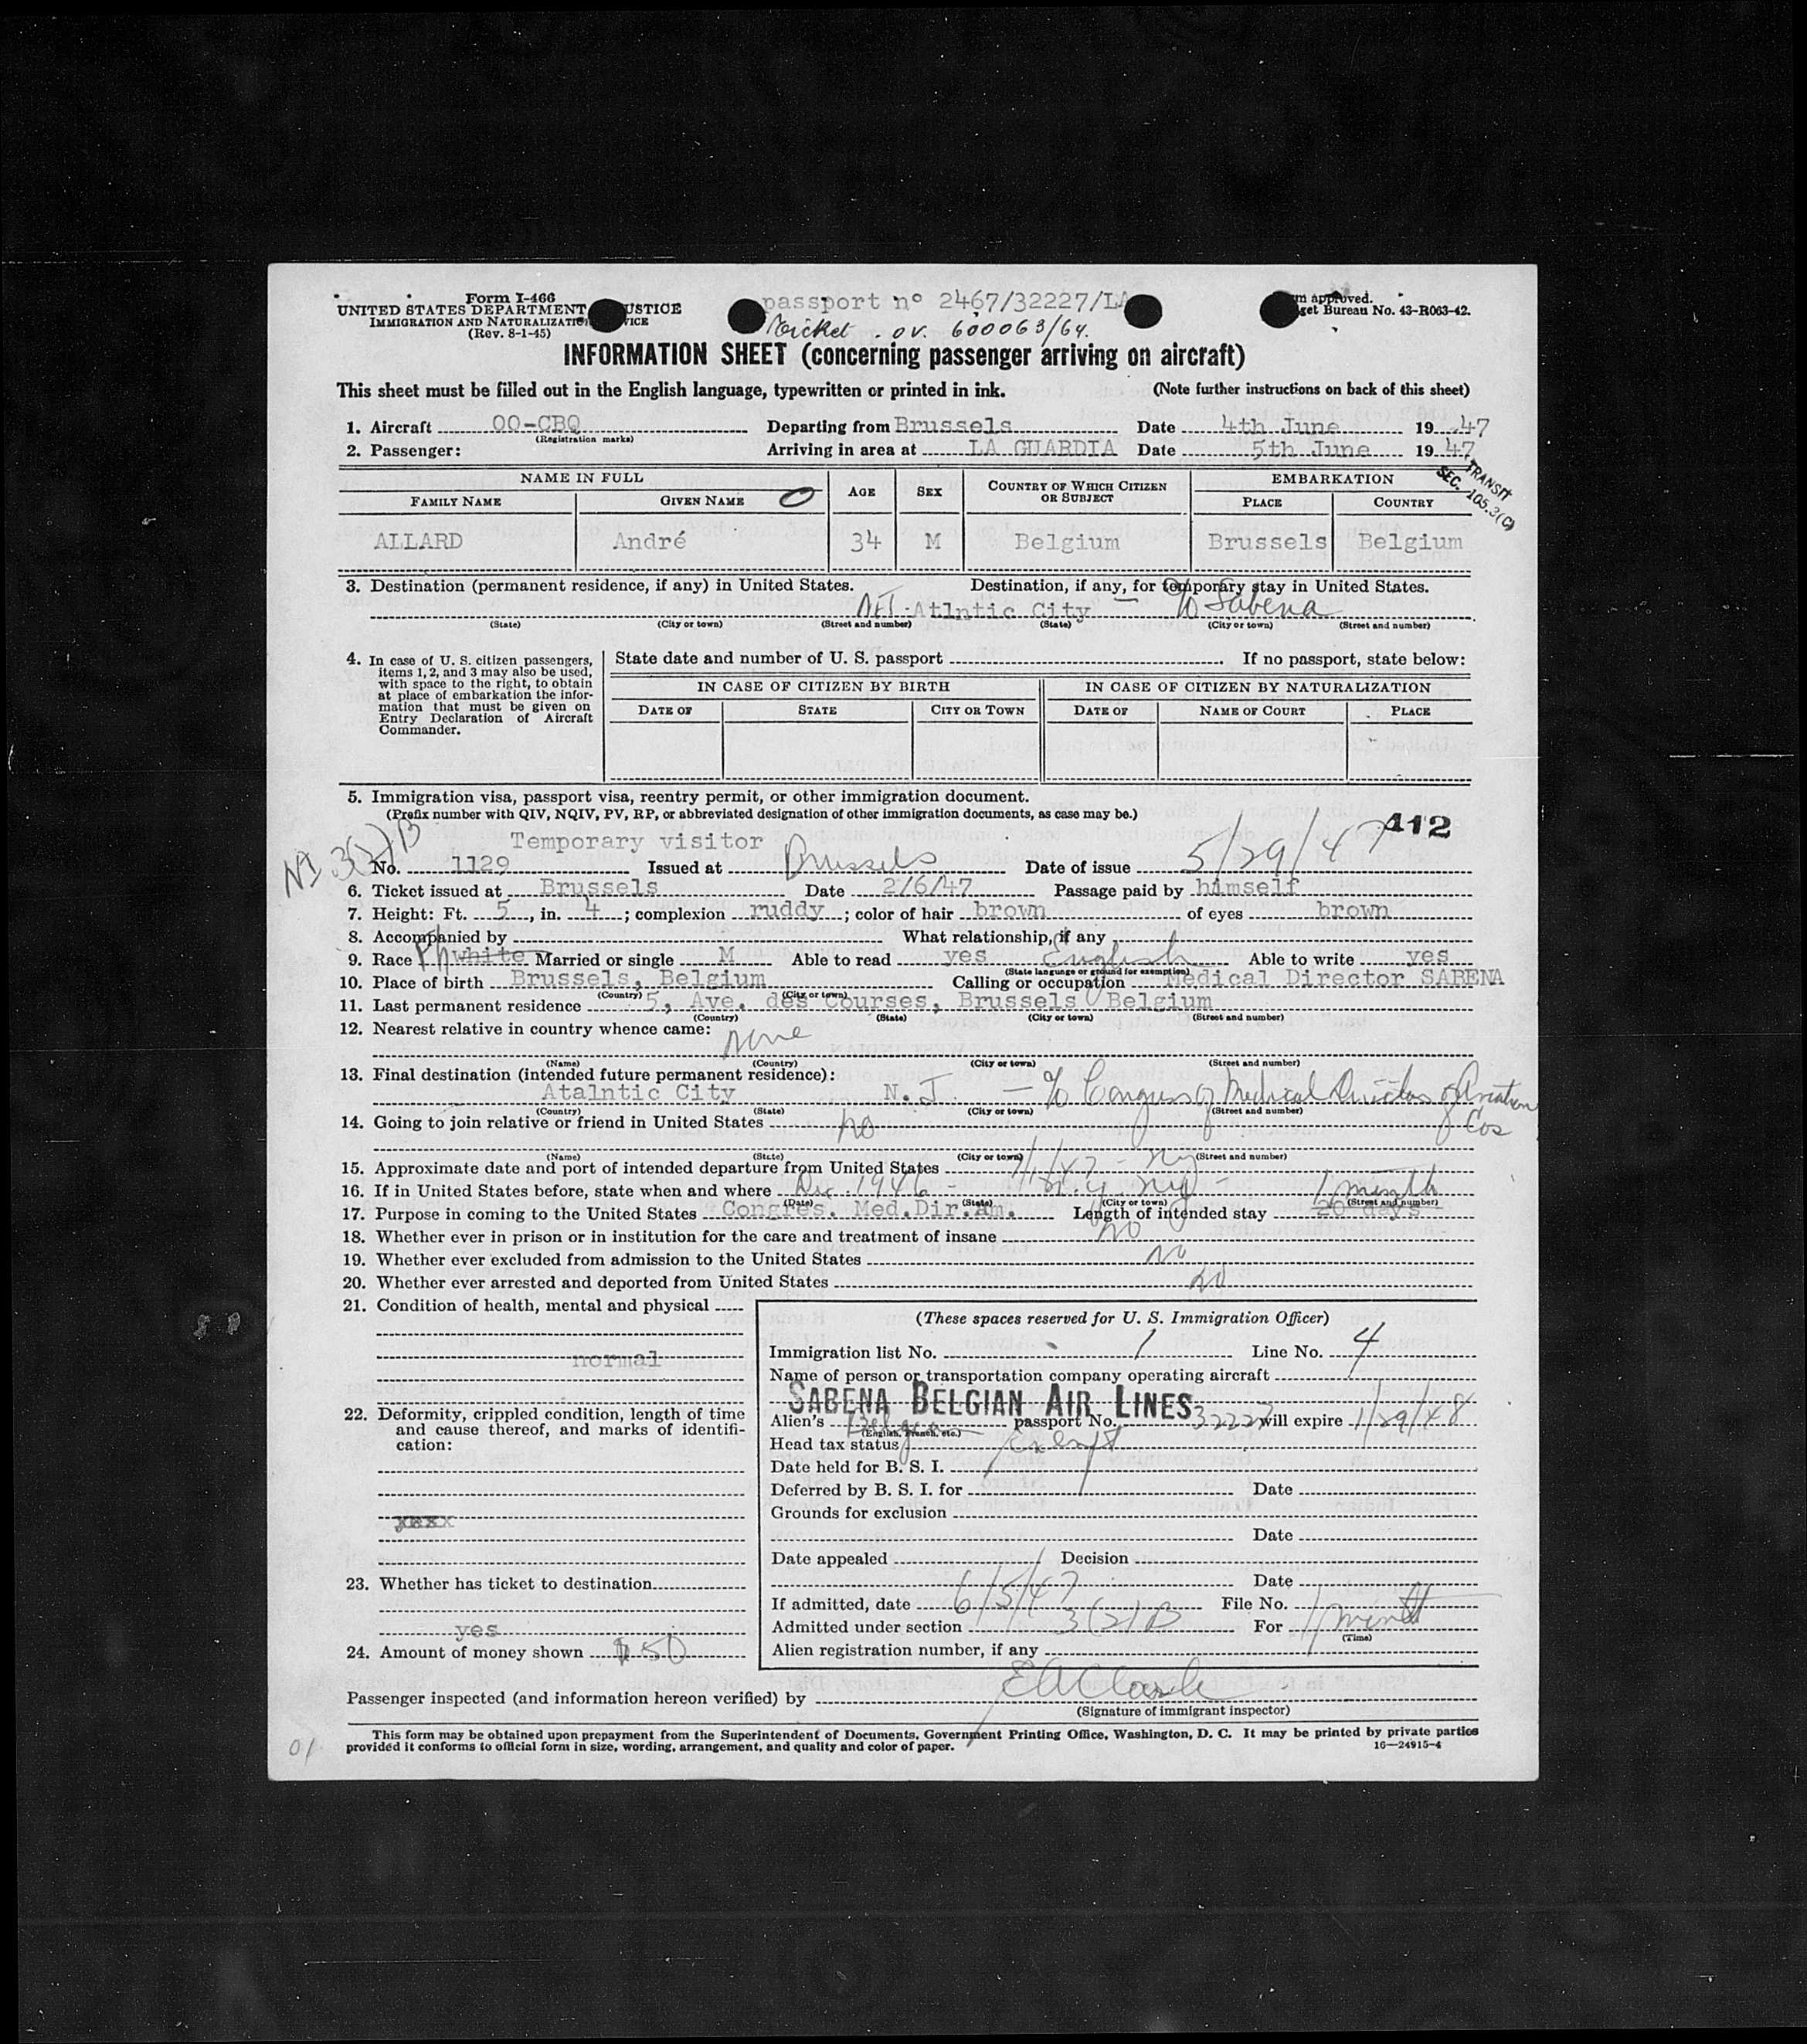 Form I-466
UNITED STATES DEPARTMENT USTICE
IMMIGRATION AND NATURALIZATI VICE
(Rev. 8-1-45)
passport n° 2467/32227/LA
Ticket . ov. 600063/64.
m approved.
get Bureau No. 43-R063-42.
INFORMATION SHEET (concerning passenger arriving on aircraft)
This sheet must be filled out in the English language, typewritten or printed in ink. (Note further instructions on back of this sheet)
1. Aircraft OO-CBQ Departing from Brussels Date 4th June 19 47
(Registration marks)
2. Passenger: Arriving in area at LA GUARDIA Date 5th June 19 47
TRANSIT
SEC. 105.3(C)
NAME IN FULL AGE SEX COUNTRY OF WHICH CITIZEN OR SUBJECT EMBARKATION
FAMILY NAME GIVEN NAME PLACE COUNTRY
ALLARD André 34 M Belgium Brussels Belgium
3. Destination (permanent residence, if any) in United States. Destination, if any, for temporary stay in United States.
Atlntic City — % Sabena
(State) (City or town) (Street and number) (State) (City or town) (Street and number)
4. In case of U. S. citizen passengers,
items 1, 2, and 3 may also be used,
with space to the right, to obtain
at place of embarkation the infor-
mation that must be given on
Entry Declaration of Aircraft
Commander.
State date and number of U. S. passport If no passport, state below:
IN CASE OF CITIZEN BY BIRTH IN CASE OF CITIZEN BY NATURALIZATION
DATE OF STATE CITY OR TOWN DATE OF NAME OF COURT PLACE
5. Immigration visa, passport visa, reentry permit, or other immigration document.
(Prefix number with QIV, NQIV, PV, RP, or abbreviated designation of other immigration documents, as case may be.)
412
NI 3(2)B
Temporary visitor
No. 1129 Issued at Brussels Date of issue 5/29/47
6. Ticket issued at Brussels Date 2/6/47 Passage paid by himself
7. Height: Ft. 5, in. 4; complexion ruddy; color of hair brown of eyes brown
8. Accompanied by What relationship, if any
9. Race white Married or single M Able to read yes English Able to write yes
(State language or ground for exemption)
10. Place of birth Brussels, Belgium Calling or occupation Medical Director SABENA
(Country) (City or town)
11. Last permanent residence 5, Ave. des Courses, Brussels Belgium
(Country) (State) (City or town) (Street and number)
12. Nearest relative in country whence came: none
(Name) (Country) (City or town) (Street and number)
13. Final destination (intended future permanent residence):
Atalntic City N. J. — % Congress of Medical Directors of Aviation Cos
(Country) (State) (City or town) (Street and number)
14. Going to join relative or friend in United States no
(Name) (State) (City or town) (Street and number)
15. Approximate date and port of intended departure from United States 7/1/47 - NY
16. If in United States before, state when and where Dec. 1946 - N.Y. NY -
(Date) (State) (City or town) (Street and number)
1 month
17. Purpose in coming to the United States Congres. Med.Dir.am. Length of intended stay 20 days
18. Whether ever in prison or in institution for the care and treatment of insane no
19. Whether ever excluded from admission to the United States no
20. Whether ever arrested and deported from United States no
21. Condition of health, mental and physical
normal
22. Deformity, crippled condition, length of time
and cause thereof, and marks of identifi-
cation:
23. Whether has ticket to destination
yes
24. Amount of money shown $50
(These spaces reserved for U. S. Immigration Officer)
Immigration list No. 1 Line No. 4
Name of person or transportation company operating aircraft
SABENA BELGIAN AIR LINES
Alien's Belgian passport No. 32227 will expire 1/29/48
(English, French, etc.)
Head tax status exempt
Date held for B. S. I.
Deferred by B. S. I. for Date
Grounds for exclusion
Date
Date appealed Decision
Date
If admitted, date 6/5/47 File No.
Admitted under section 3(2)B For 1 month
(Time)
Alien registration number, if any
Passenger inspected (and information hereon verified) by EA Clark
(Signature of immigrant inspector)
This form may be obtained upon prepayment from the Superintendent of Documents, Government Printing Office, Washington, D. C. It may be printed by private parties
provided it conforms to official form in size, wording, arrangement, and quality and color of paper. 16—24915-4
01